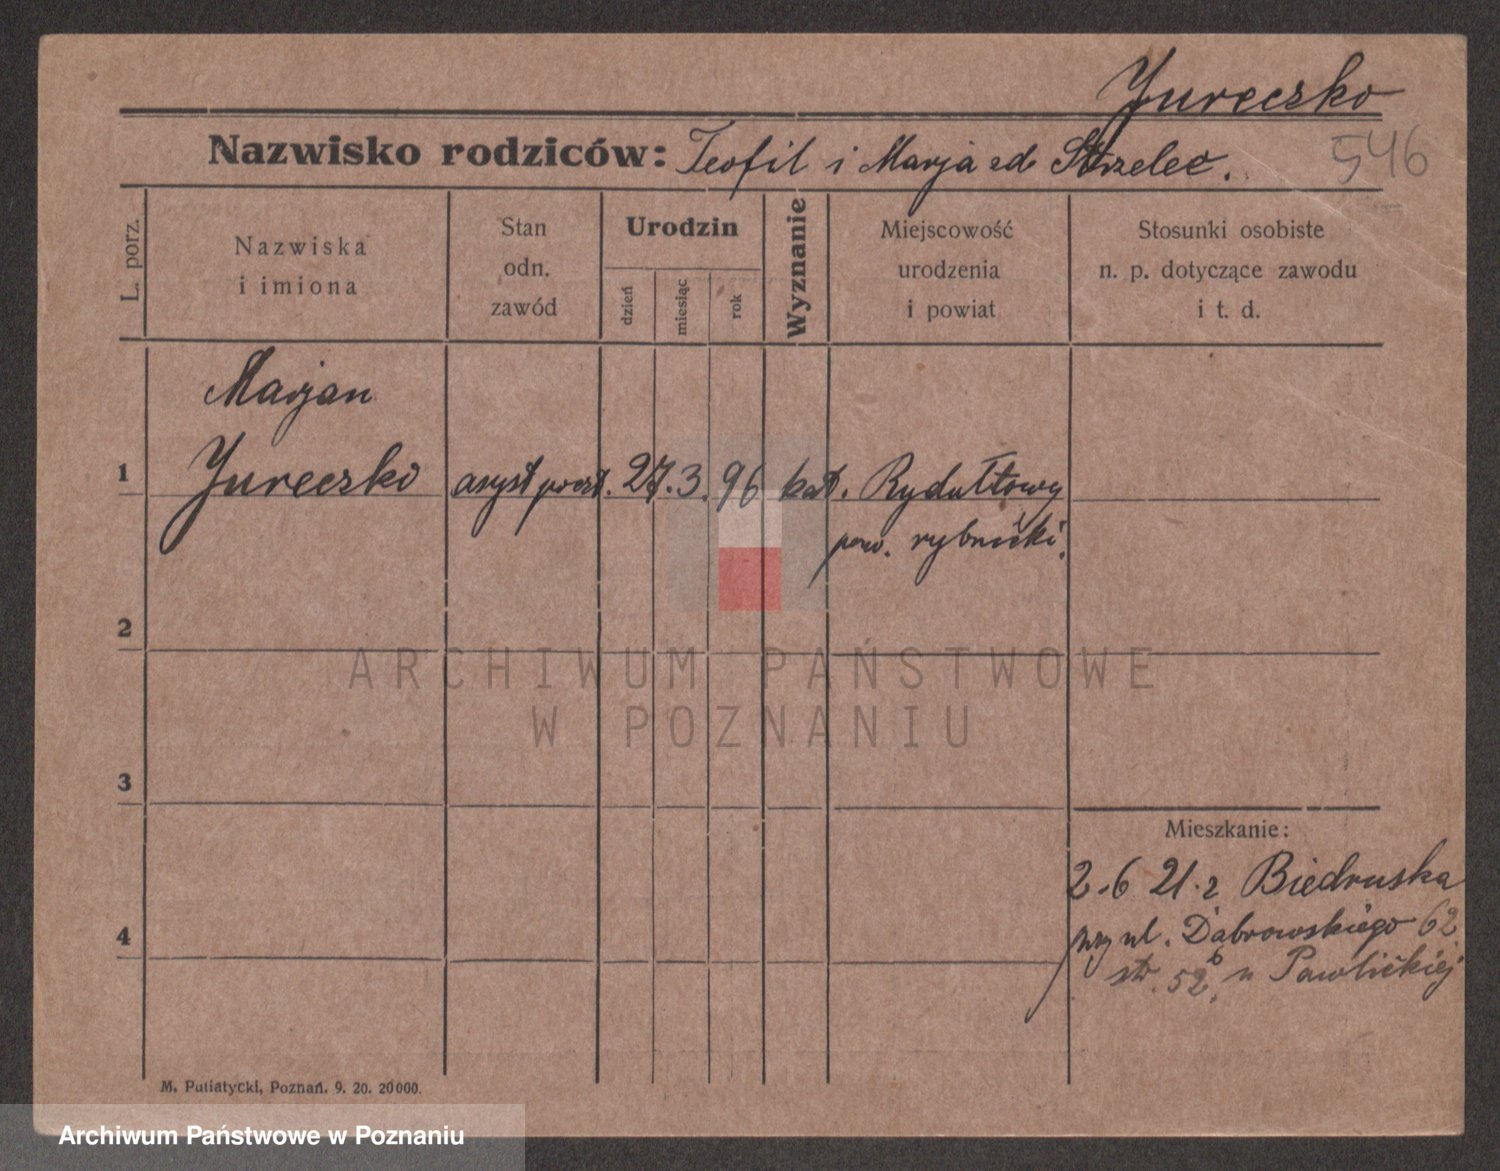 Jureczko
Nazwisko rodziców: Teofil i Marja zd Strzelec.
546
L. porz.
Nazwiska
i imiona
Stan
odn.
zawód
Urodzin
dzień
miesiąc
rok
Wyznanie
Miejscowość
urodzenia
i powiat
Stosunki osobiste
n. p. dotyczące zawodu
i t. d.
Marjan
1 Jureczko asyst poczt. 27.3.96 kat. Rydułtowy
pow. rybnicki.
2
ARCHIWUM PAŃSTWOWE
W POZNANIU
3
Mieszkanie:
2.6 21.z Biedruska
przy ul. Dąbrowskiego 62
4
str. 52b, u Pawlickiej
M. Putiatycki, Poznań. 9. 20. 20000.
Archiwum Państwowe w Poznaniu